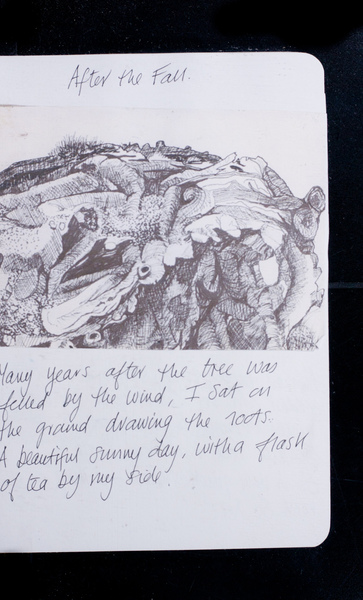 After the Fall.
Many years after the tree was
felled by the wind, I sat on
the ground drawing the roots.
A beautiful sunny day, with a flask
of tea by my side.